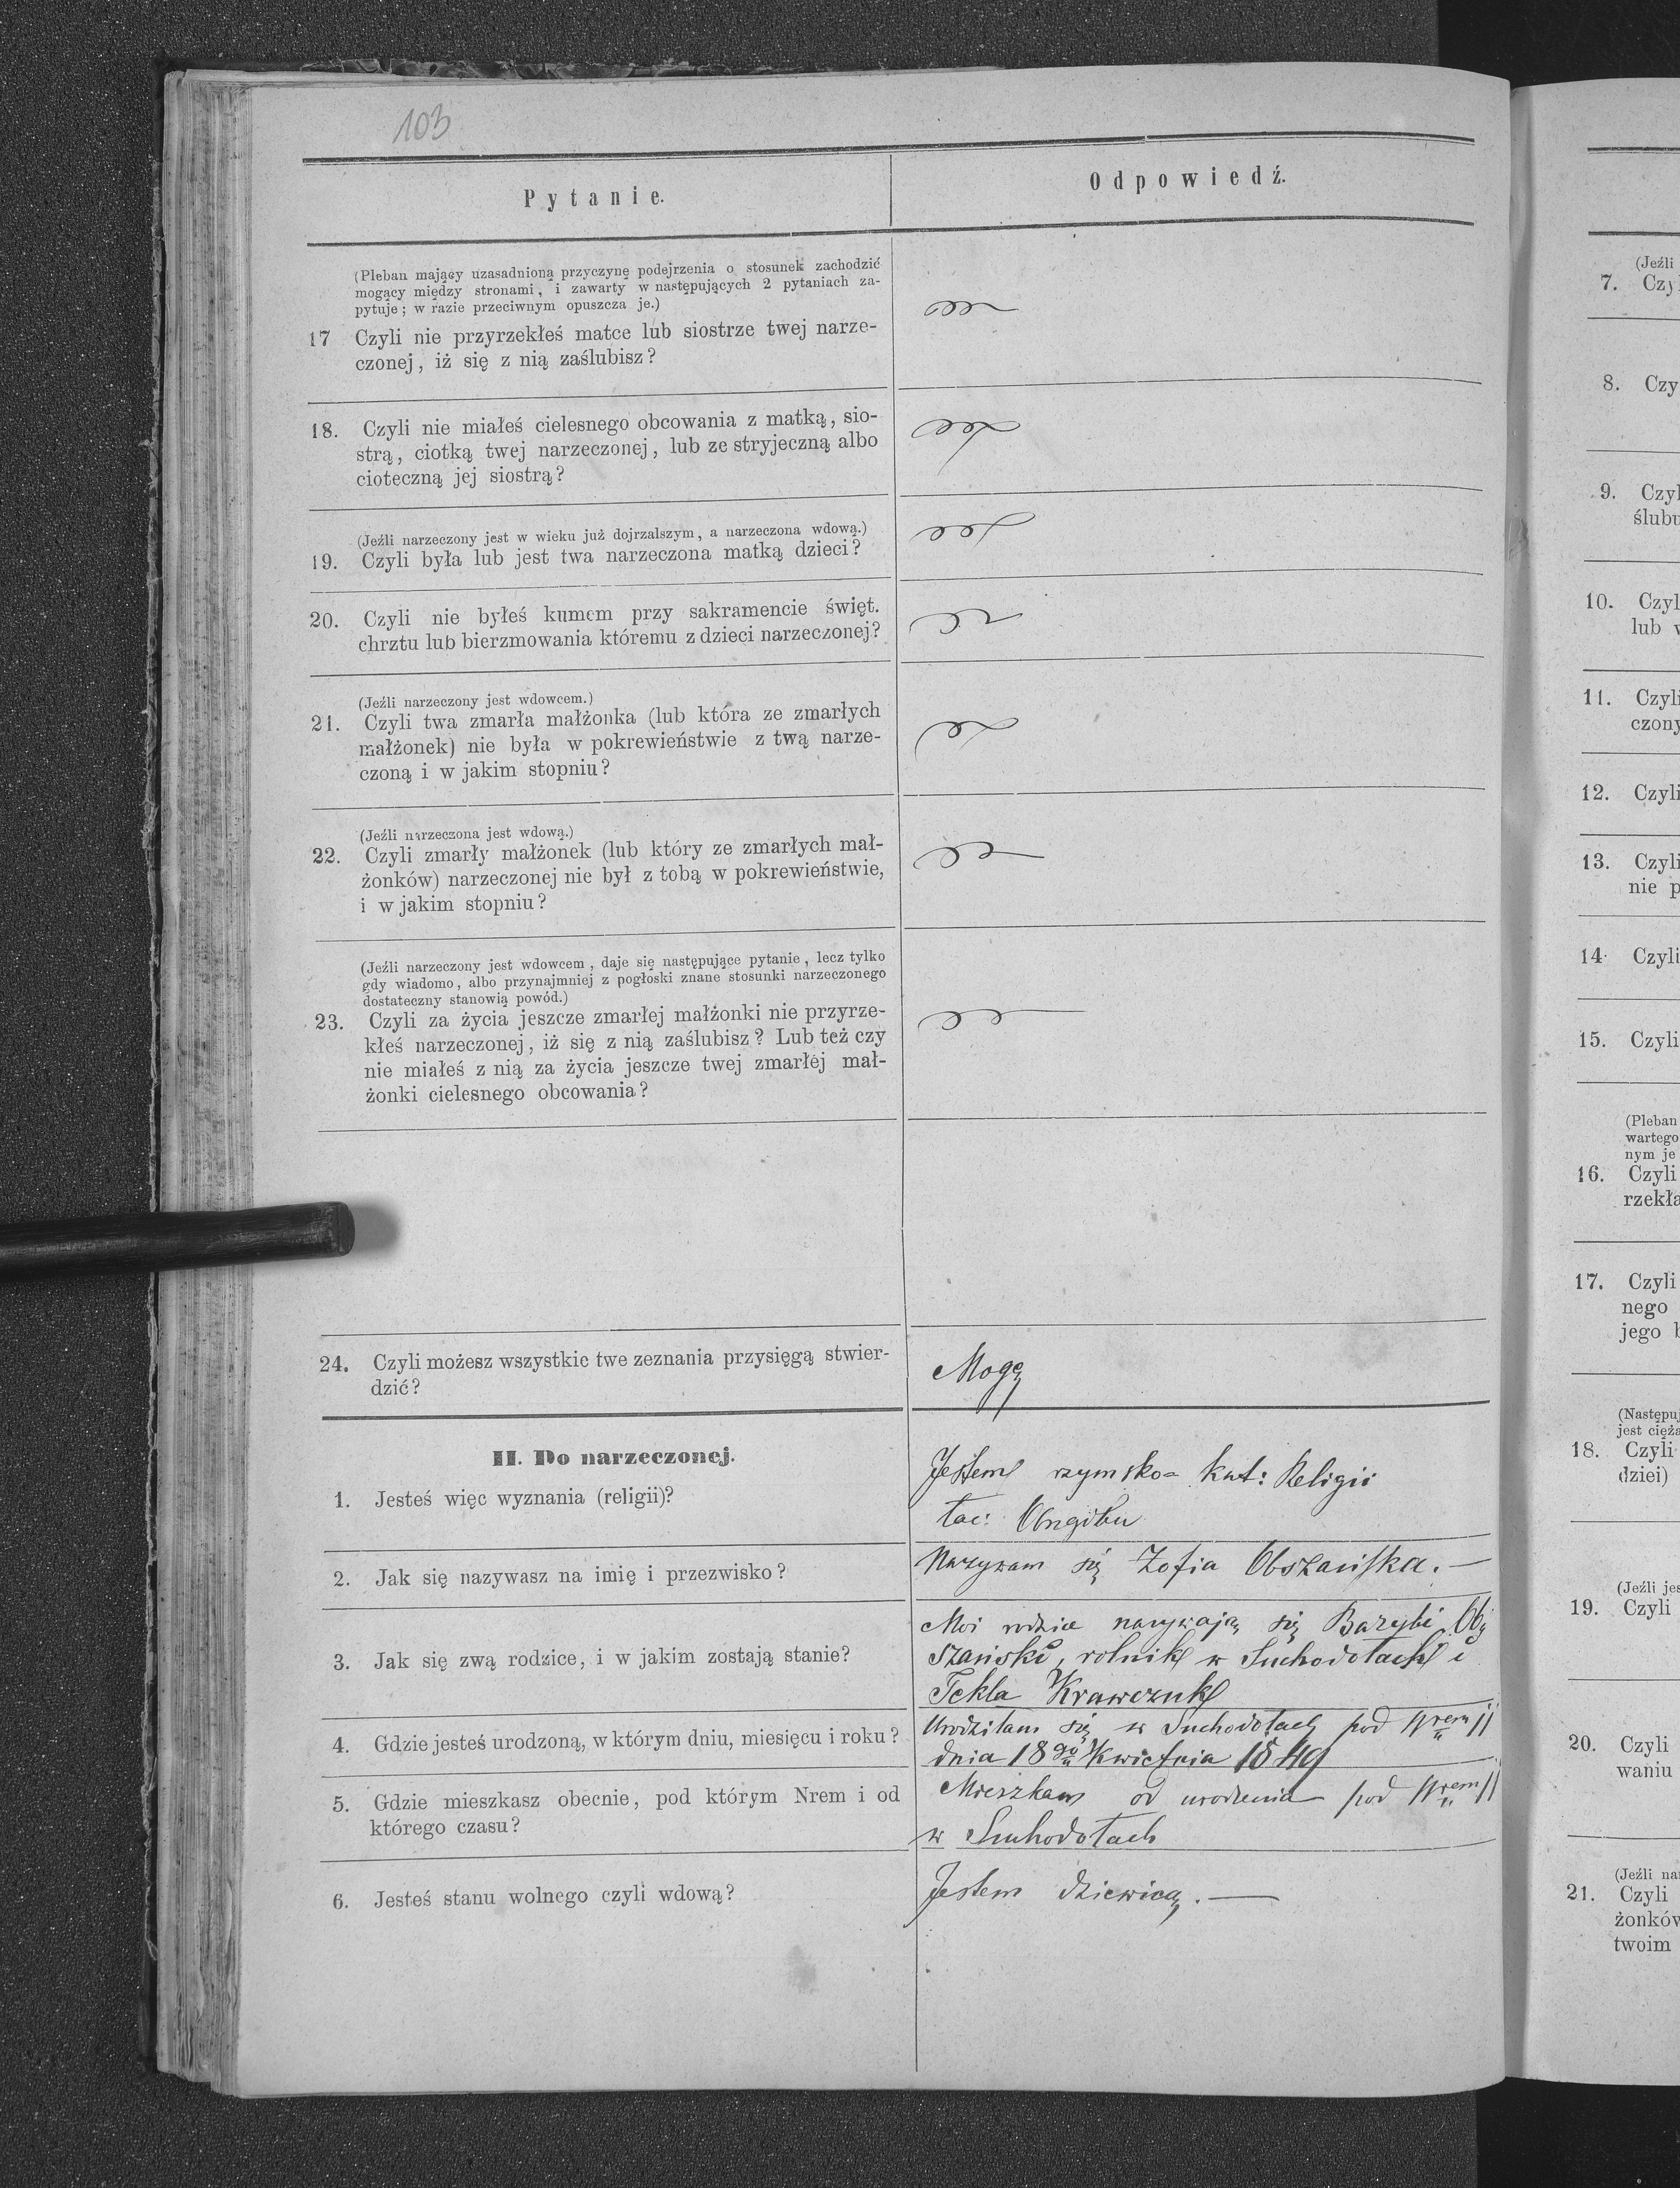 103
Pytanie.
Odpowiedź.
(Pleban mający uzasadnioną przyczynę podejrzenia o stosunek zachodzić
mogący między stronami, i zawarty w następujących 2 pytaniach za-
pytuje; w razie przeciwnym opuszcza je.)
17 Czyli nie przyrzekłeś matce lub siostrze twej narze-
czonej, iż się z nią zaślubisz?
18. Czyli nie miałeś cielesnego obcowania z matką, sio-
strą, ciotką twej narzeczonej, lub ze stryjeczną albo
cioteczną jej siostrą?
(Jeźli narzeczony jest w wieku już dojrzalszym, a narzeczona wdową.)
19. Czyli była lub jest twa narzeczona matką dzieci?
20. Czyli nie byłeś kumem przy sakramencie święt.
chrztu lub bierzmowania któremu z dzieci narzeczonej?
(Jeźli narzeczony jest wdowcem.)
21. Czyli twa zmarła małżonka (lub która ze zmarłych
małżonek) nie była w pokrewieństwie z twą narze-
czoną i w jakim stopniu?
(Jeźli narzeczona jest wdową.)
22. Czyli zmarły małżonek (lub który ze zmarłych mał-
żonków) narzeczonej nie był z tobą w pokrewieństwie,
i w jakim stopniu?
(Jeźli narzeczony jest wdowcem, daje się następujące pytanie, lecz tylko
gdy wiadomo, albo przynajmniej z pogłoski znane stosunki narzeczonego
dostateczny stanowią powód.)
23. Czyli za życia jeszcze zmarłej małżonki nie przyrze-
kłeś narzeczonej, iż się z nią zaślubisz? Lub też czy
nie miałeś z nią za życia jeszcze twej zmarłej mał-
żonki cielesnego obcowania?
24. Czyli możesz wszystkie twe zeznania przysięgą stwier-
dzić?
Mogę
II. Do narzeczonej.
1. Jesteś więc wyznania (religii)?
Jestem rzymsko= kat: Religii
łac: Obrządku
2. Jak się nazywasz na imię i przezwisko?
Nazywam się Zofia Obszańska.—
3. Jak się zwą rodzice, i w jakim zostają stanie?
Moi rodzice nazywają się Bazyli Ob=
szański, rolnik w Suchodołach i
Tekla Krawczuk
4. Gdzie jesteś urodzoną, w którym dniu, miesięcu i roku?
Urodziłam się w Suchodołach pod Nrem 11
dnia 18go Kwietnia 1849
5. Gdzie mieszkasz obecnie, pod którym Nrem i od
którego czasu?
Mieszkam od urodzenia pod Nrem 11
w Suchodołach
6. Jesteś stanu wolnego czyli wdową?
Jestem dziewicą.—
(Jeźli
7. Czy
8. Czy
9. Czyl
ślubu
10. Czyl
lub
11. Czyli
czony
12. Czyli
13. Czyli
nie p
14. Czyli
15. Czyli
(Pleban
wartego
nym je
16. Czyli
rzekła
17. Czyli
nego
jego
(Następuj
jest cięża
18. Czyli
dziei)
(Jeźli jes
19. Czyli
20. Czyli
waniu
(Jeźli na
21. Czyli
żonków
twoim